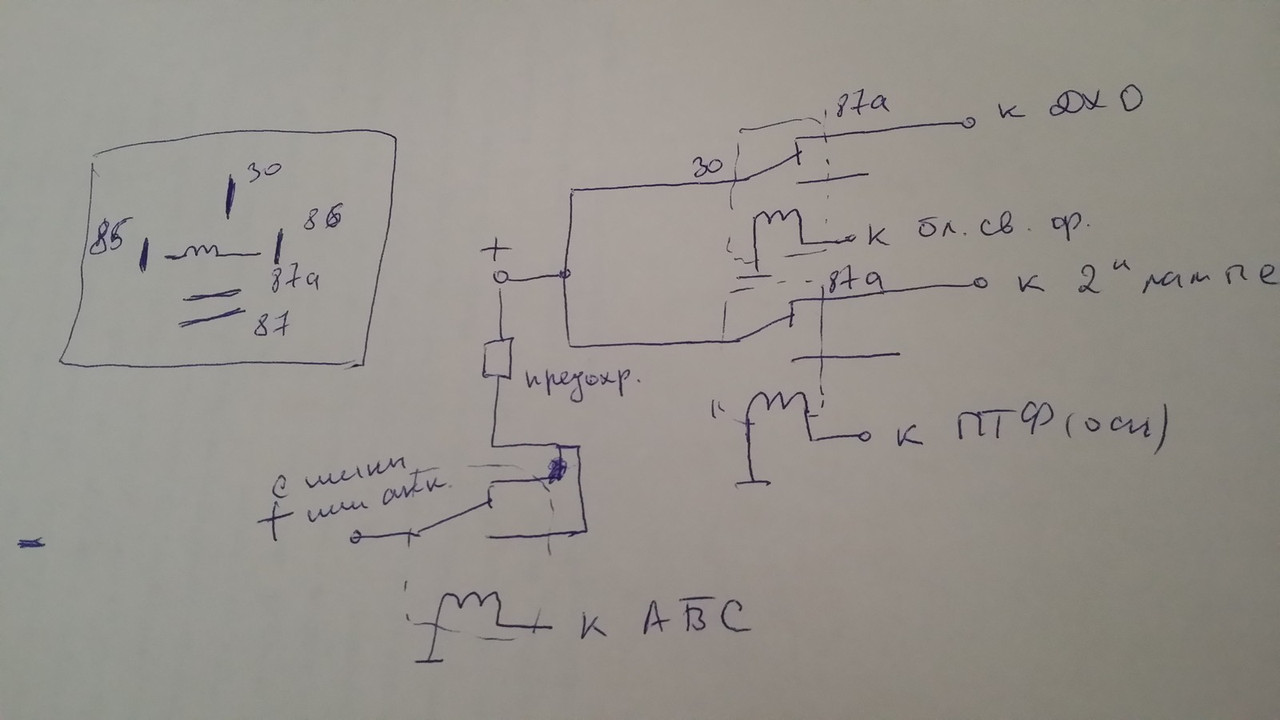 30
85
86
87а
87
87а
к ДХО
30
к бл. св. ф.
+
87а
к 2й лампе
предохр.
к ПТФ (осн)
с шины
+ или акк.
-
к АБС